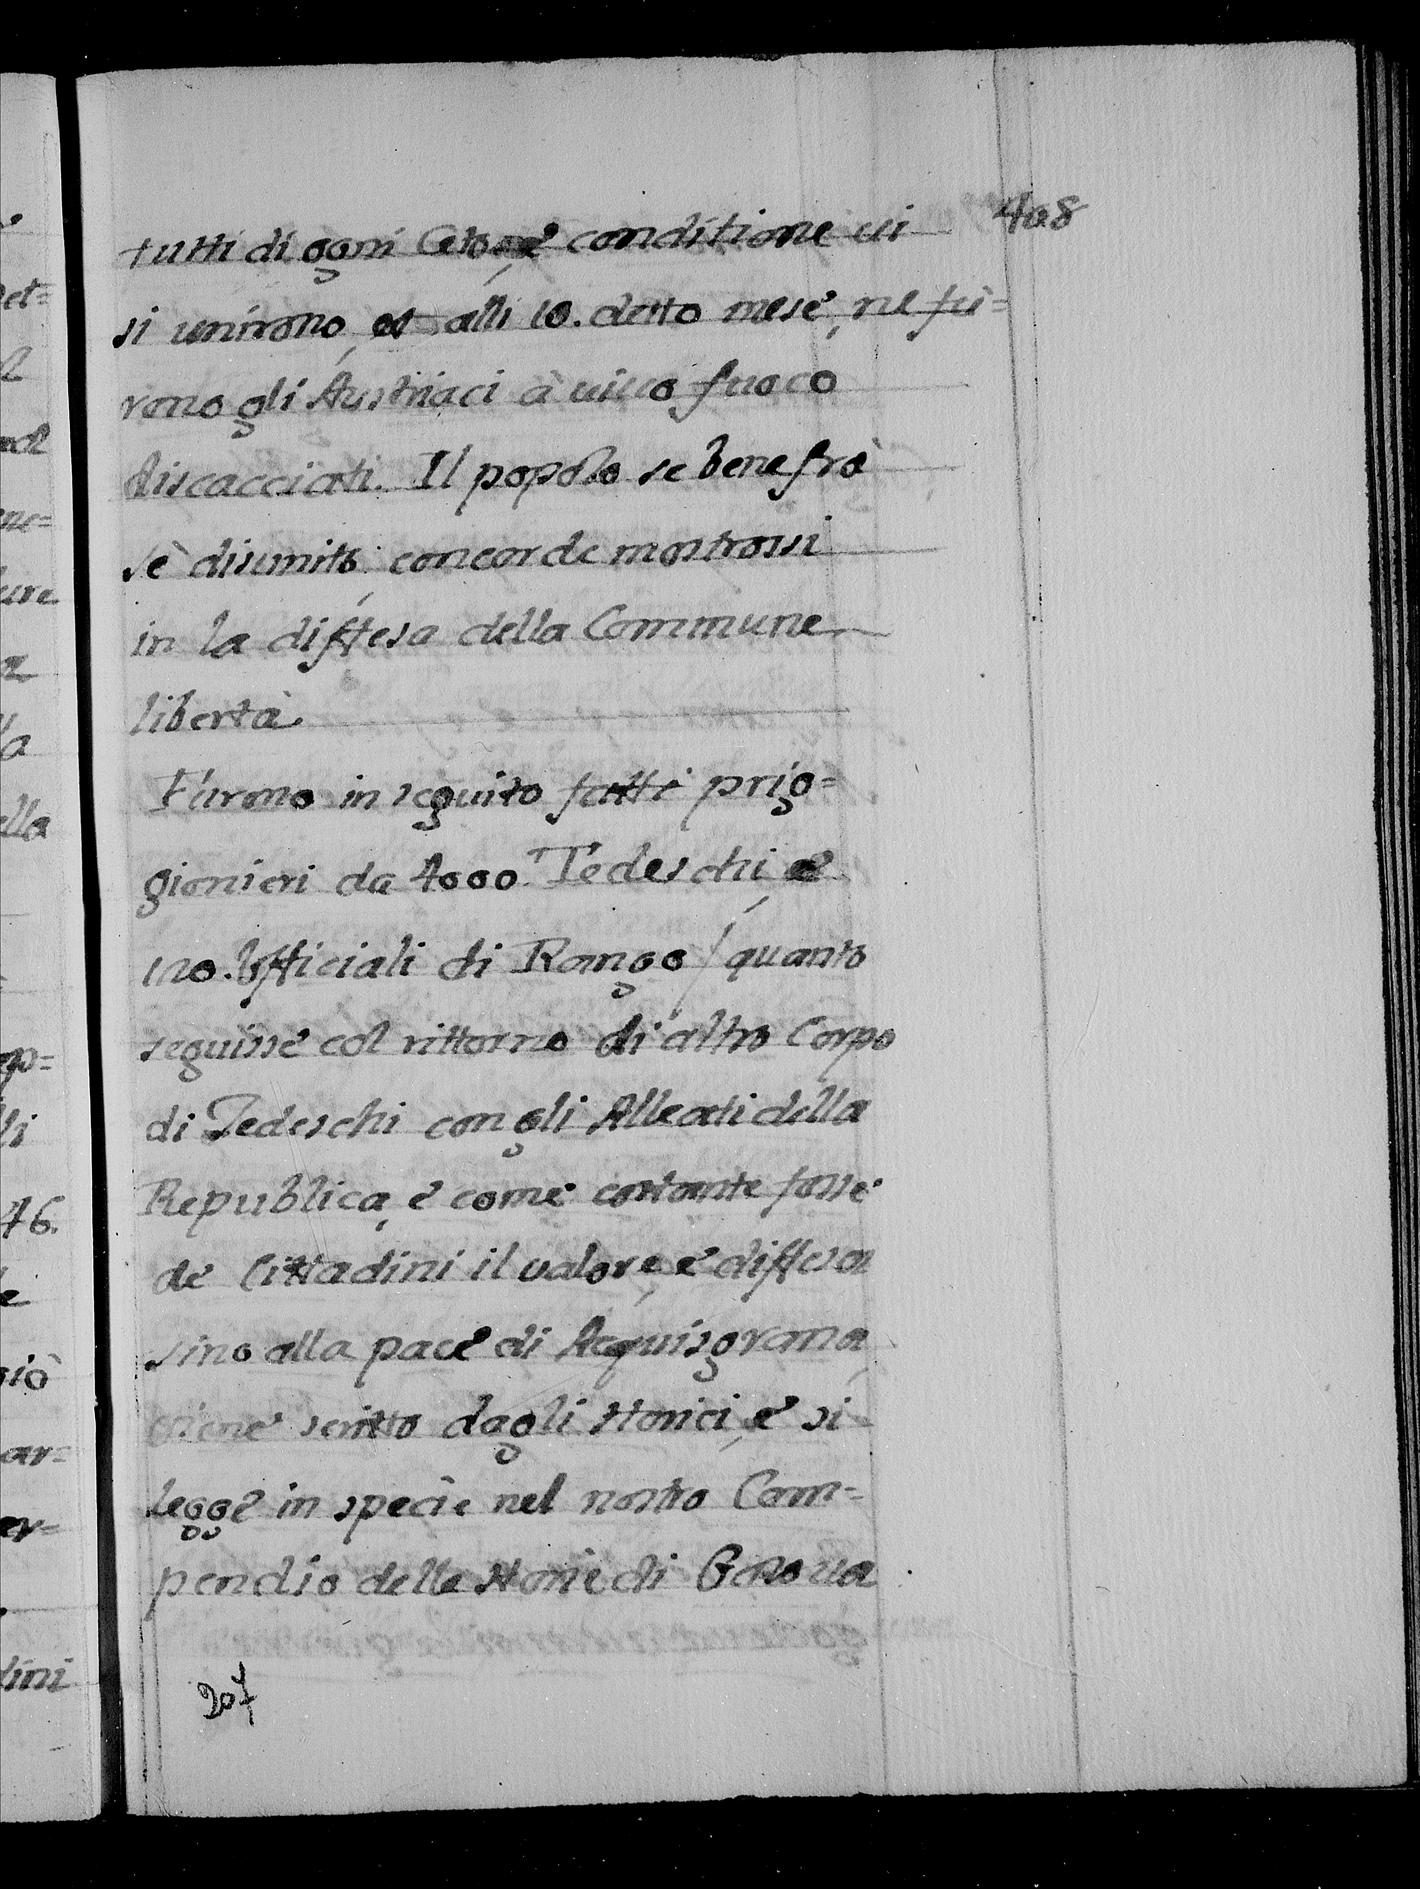 408
tutti di ogni Ceto, e conditione vi
si unirono, et alli 10. detto mese, ne fù=
rono gli Austriaci à vivo fuoco
discacciati. Il popolo se bene frà
sè disunito, concorde mostrossi
in la diffesa della Commune
libertà
Furono in seguito fatti prig=
gionieri da 4000. Tedeschi, e
120. Ufficiali di Rango / quanto
seguisse col rittorno di altro Corpo
di Tedeschi con gli Alleati della
Republica, e come costante fosse
de Cittadini il valore, e diffesa
sino alla pace di Acquisgrana,
viene scritto dagli storici, e si
legge in specie nel nostro Com=
pendio delle storie di Genova
207
et=
ne=
ure
la
ella
li
46.
ar=
er=
dini